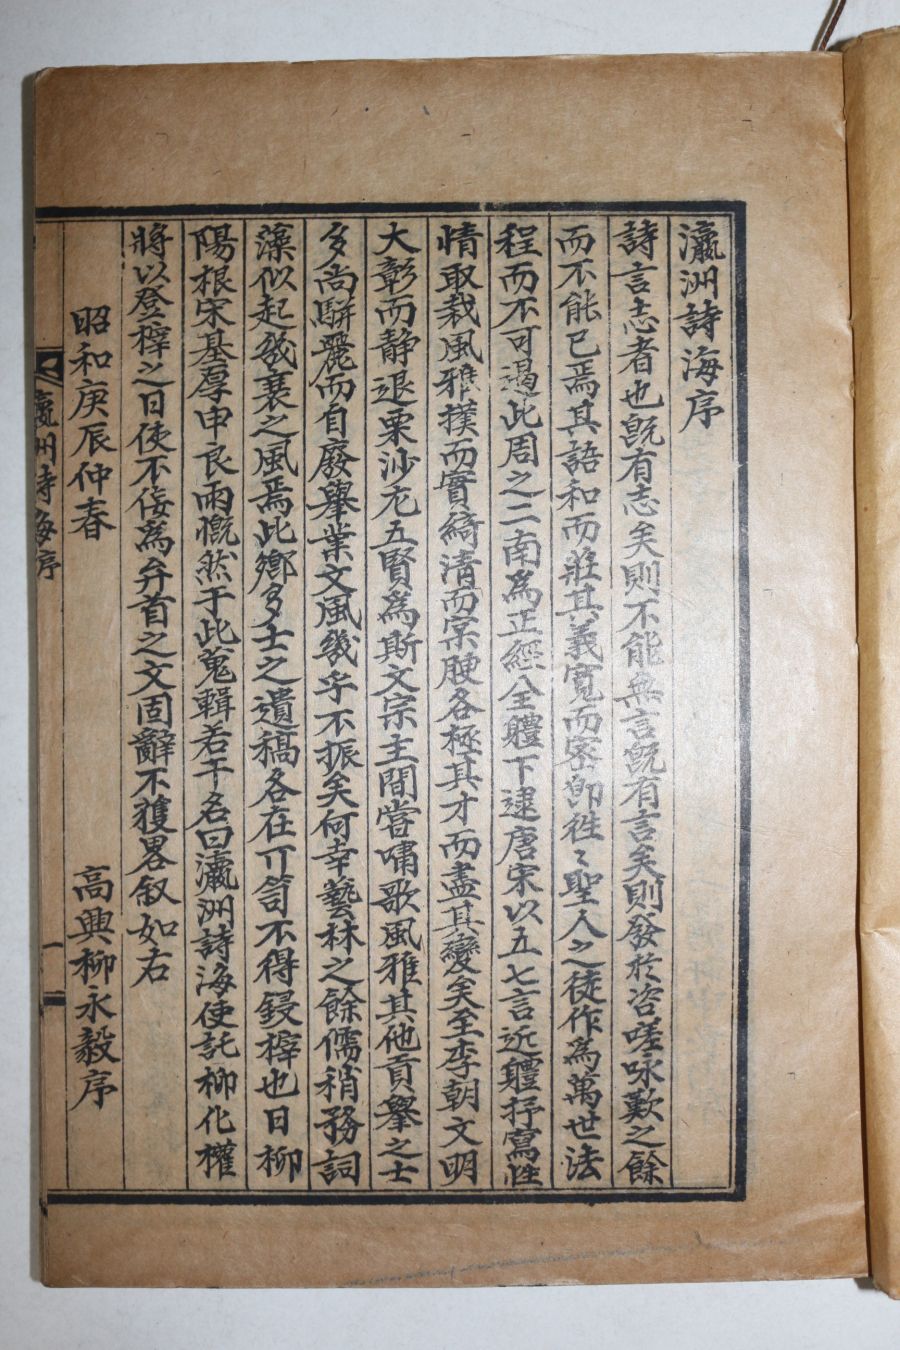 瀛洲詩海序
詩言志者也旣有志矣則不能無言旣有言矣則發於咨嗟咏歎之餘
而不能已焉其語和而莊其義寬而密卽徃〻聖人之徒作爲萬世法
程而不可遏此周之二南爲正經全體下逮唐宋以五七言近軆抒寫性
情取裁風雅撲而實綺淸而宗腴各極其才而盡其變矣至李朝文明
大彰而靜退栗沙尤五賢爲斯文宗主間嘗嘯歌風雅其他貢擧之士
多尚騈麗而自廢擧業文風幾乎不振矣何幸藝林之餘儒稍務詞
藻似起幾衰之風焉此鄕多士之遺稿各在巾笥不得鋟梓也日柳
陽根宋基厚申良雨慨然于此蒐輯若干名曰瀛洲詩海使託柳化權
將以登梓之日使不侫爲弁首之文固辭不獲畧敍如右
昭和庚辰仲春 高興柳永毅序
瀛洲詩海序 一